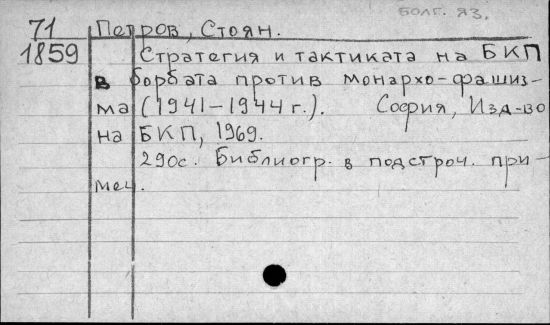 болг. яз.
71 Петров, Стоян.
1859 Стратегия и тактиката на БКП
в борбата против монархо-фашиз-
ма (1941-1944 г.). София, Изд-во
на БКП, 1969.
290с. Библиогр. в подстроч. при-
меч.